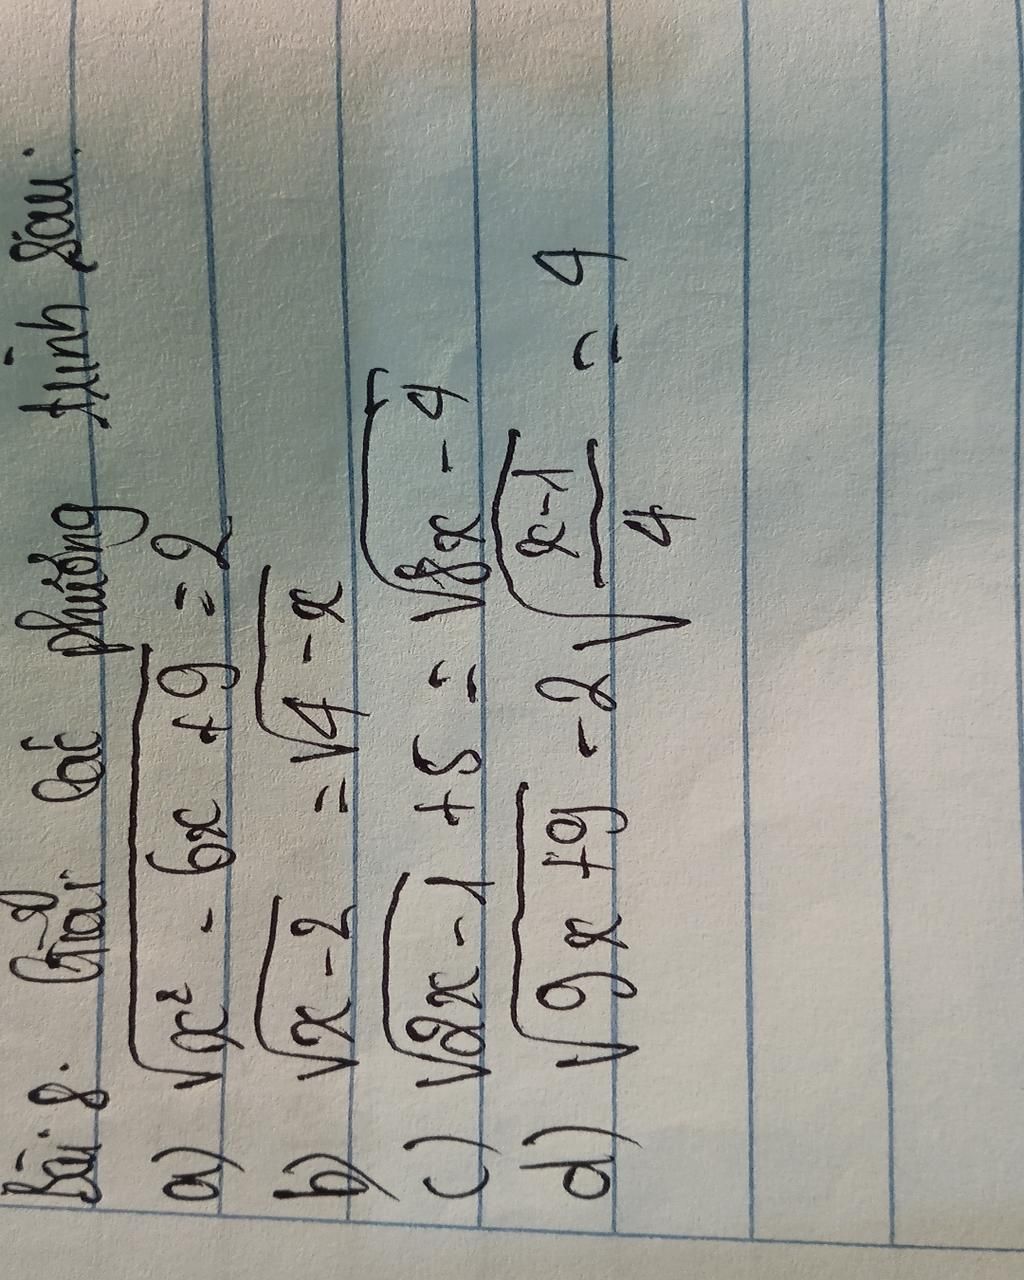 Bài 8. Giải các phương trình sau:
a) √(x² - 6x + 9) = 2
b) √(x - 2) = √(4 - x)
c) √(2x - 1) + 5 = √(8x - 4)
d) √(9x + 9) - 2√((x - 1)/4) = 4